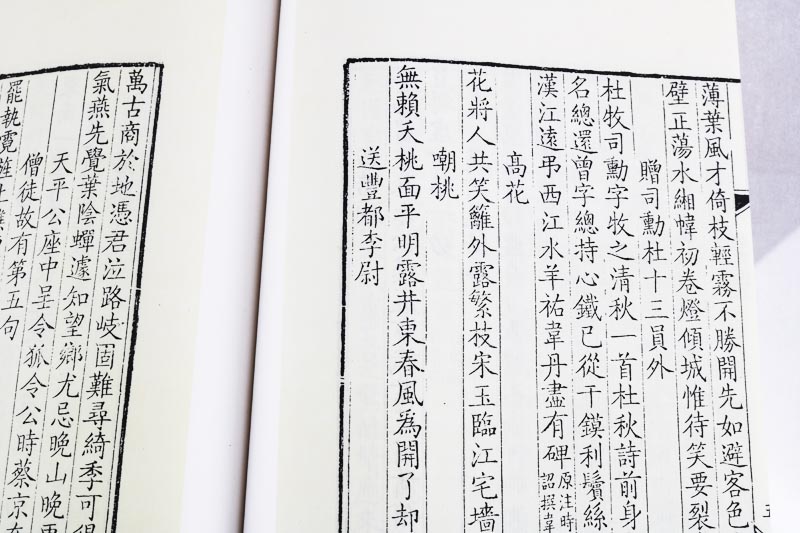 薄葉風才倚枝輕霧不勝開先如避客色
壁正蕩水緗幃初卷燈傾城惟待笑要裂
贈司勳杜十三員外
杜牧司勳字牧之清秋一首杜秋詩前身
名總還曾字總持心鐵已從干鏌利鬢絲
漢江遠弔西江水羊祐韋丹盡有碑原注時
詔撰韋
高花
花將人共笑籬外露繁枝宋玉臨江宅墻
嘲桃
無賴夭桃面平明露井東春風為開了却
送豐都李尉
萬古商於地憑君泣路岐固難尋綺季可
氣燕先覺葉陰蟬遽知望鄉尤忌晚山晚
天平公座中呈令狐令公時蔡京
僧徒故有第五句
罷執霓旌